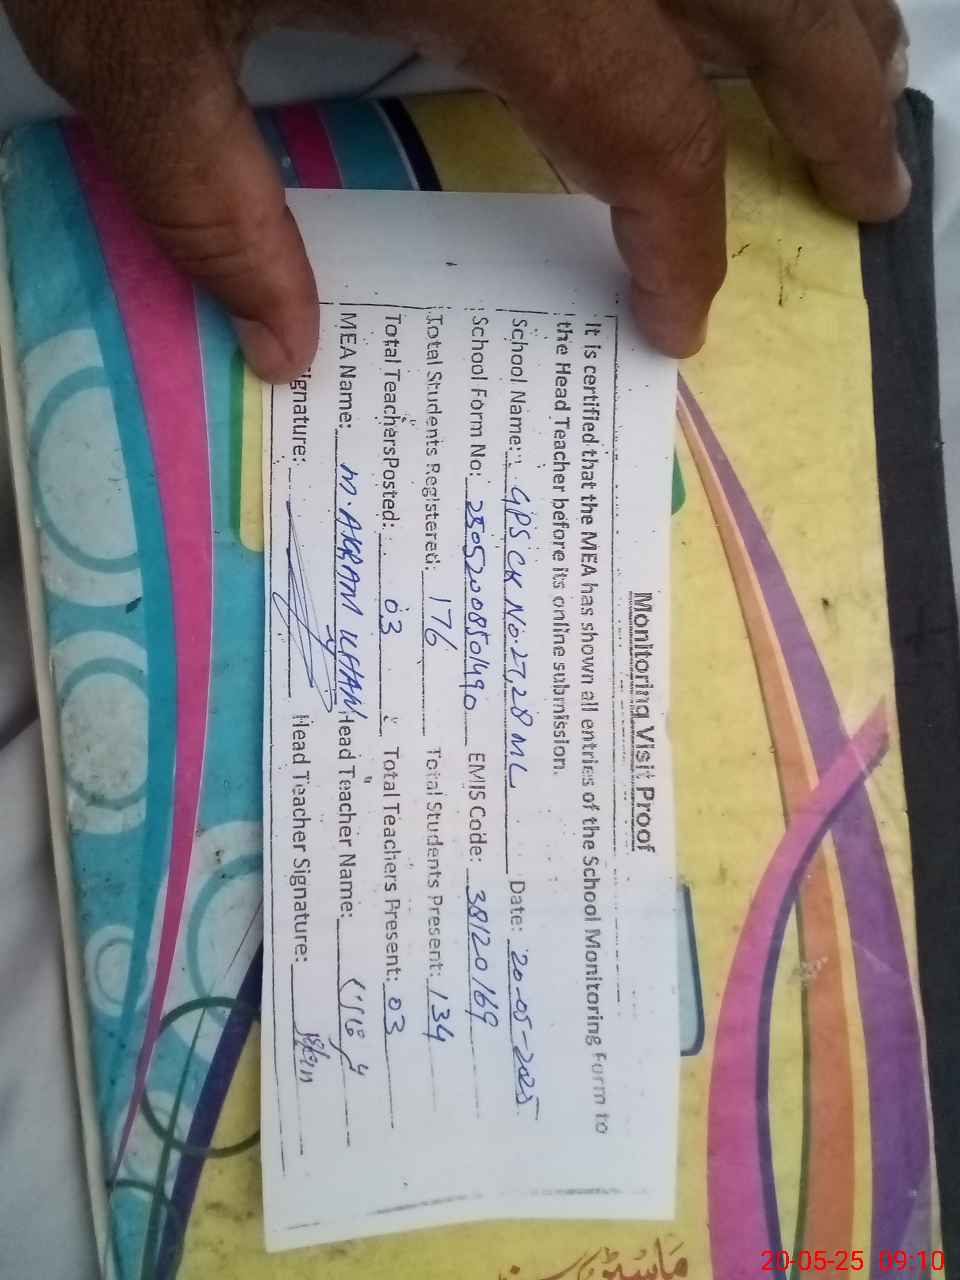 Monitoring Visit Proof
It is certified that the MEA has shown all entries of the School Monitoring Form to
the Head Teacher before its online submission.
School Name: GPS CK No. 27,28 ML Date: 20-05-2025
School Form No: 2505200850490 EMIS Code: 38120169
Total Students Registered: 176 Total Students Present: 134
Total TeachersPosted: 03 Total Teachers Present: 03
MEA Name: M. AKRAM KHAN Head Teacher Name:
ignature: Head Teacher Signature:
20-05-25 09:10